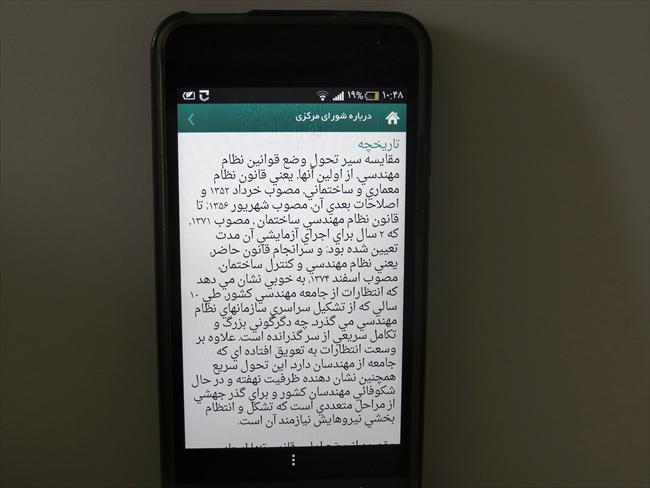 ۱۰:۴۸ ۱۹%
درباره شورای مرکزی
تاریخچه
مقایسه سیر تحول وضع قوانین نظام
مهندسي، از اولین آنها، یعني قانون نظام
معماري و ساختماني، مصوب خرداد ۱۳۵۲ و
اصلاحات بعدي آن، مصوب شهریور ۱۳۵۶، تا
قانون نظام مهندسي ساختمان ، مصوب ۱۳۷۱،
که ۲ سال براي اجراي آزمایشي آن مدت
تعیین شده بود؛ و سرانجام قانون حاضر،
یعني نظام مهندسي و کنترل ساختمان،
مصوب اسفند ۱۳۷۴، به خوبي نشان مي دهد
که انتظارات از جامعه مهندسي کشور، طي ۱۰
سالي که از تشکیل سراسري سازمانهاي نظام
مهندسي مي گذرد، چه دگرگوني بزرگ و
تکامل سریعي از سر گذرانده است. علاوه بر
وسعت انتظارات به تعویق افتاده اي که
جامعه از مهندسان دارد، این تحول سریع
همچنین نشان دهنده ظرفیت نهفته و در حال
شکوفائي مهندسان کشور و براي گذر جهشي
از مراحل متعددي است که تشکل و انتظام
بخشي نیروهایش نیازمند آن است.